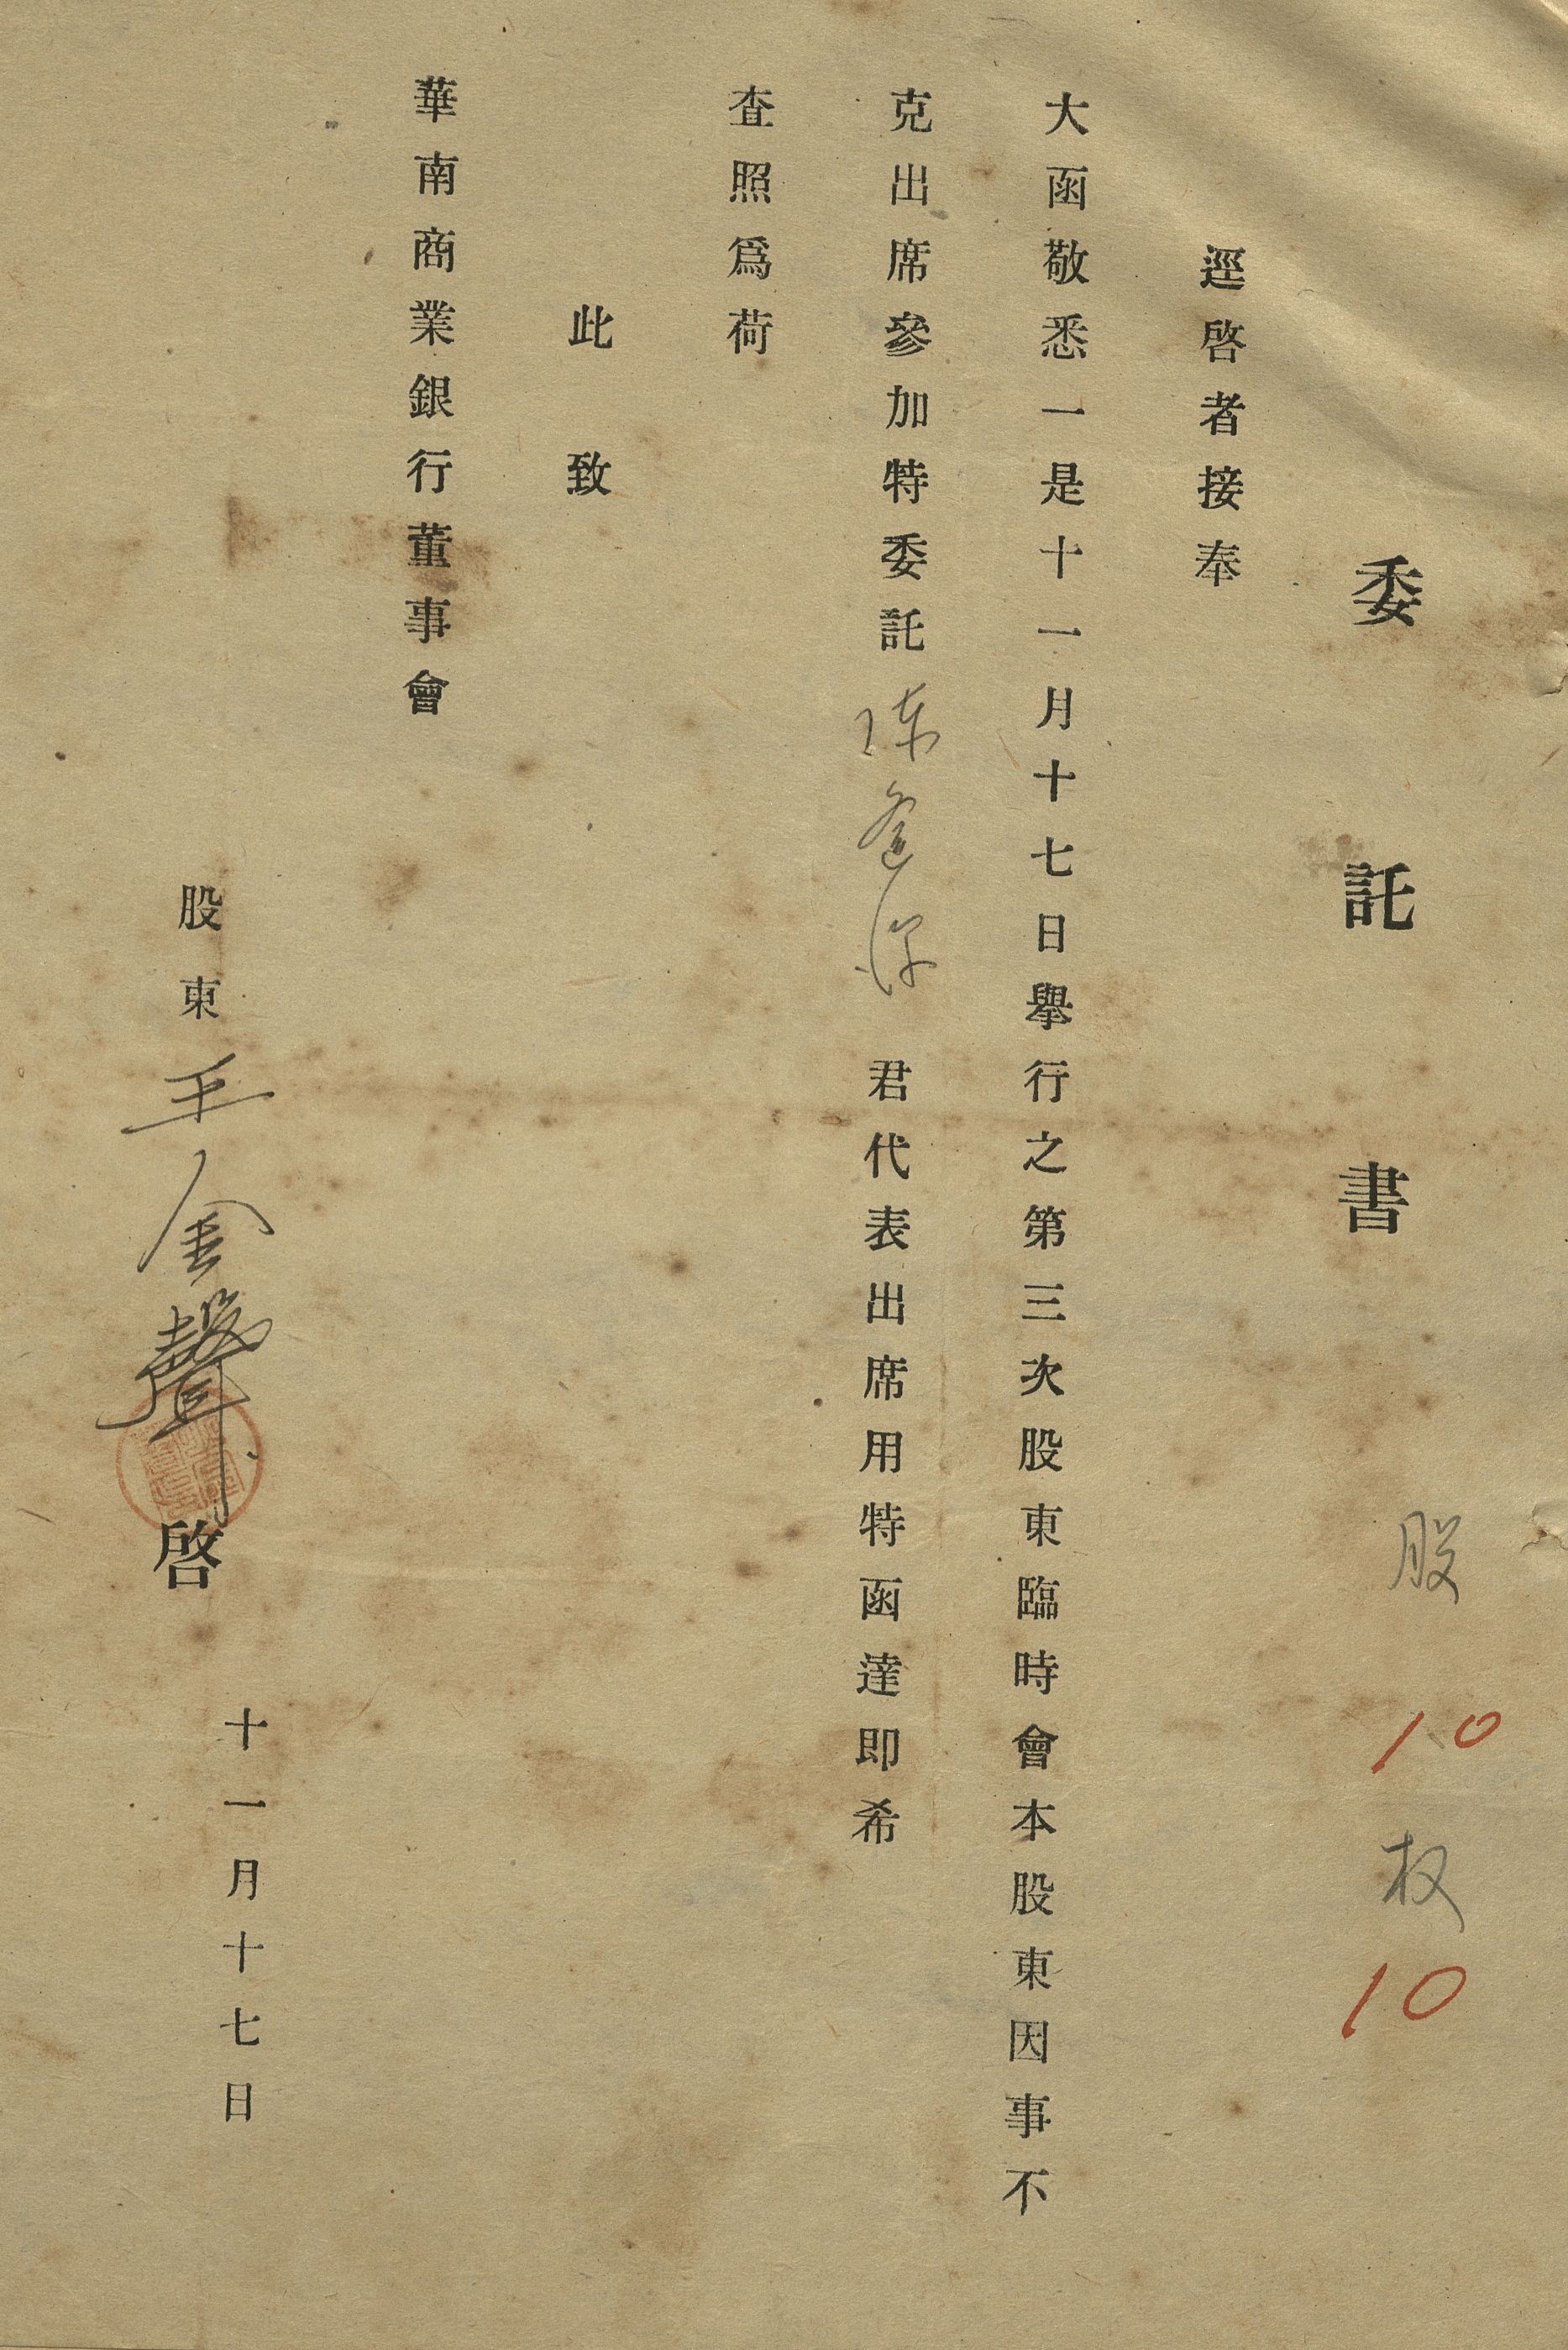 委託書　股　10　权　10
逕啓者接奉
大函敬悉一是十一月十七日舉行之第三次股東臨時會本股東因事不
克出席參加特委託陈逢源君代表出席用特函達即希
查照爲荷
此致
華南商業銀行董事會
股東王金聲啓
十一月十七日